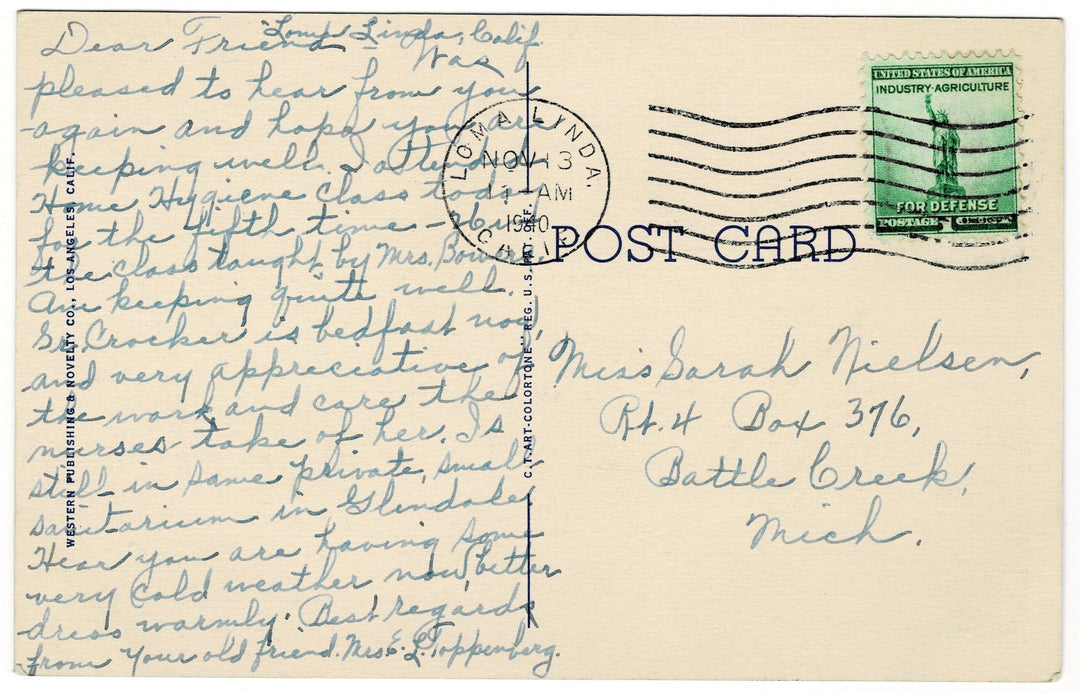 Loma Linda, Calif.
Dear Friend - Was
pleased to hear from you
again and hope you are
keeping well. I attended
Home Hygiene class today
for the fifth time - but
the class taught by Mrs. Bowers.
Am keeping quite well.
Sr. Crocker is bedfast now,
and very appreciative of
the work and care the
nurses take of her. Is
still in same private, small
sanitarium in Glindale
Hear you are having some
very cold weather now, better
dress warmly. Best regards
from Your old friend. Mrs. E. L. Toppenberg.
WESTERN PUBLISHING & NOVELTY CO., LOS ANGELES, CALIF.
C.T. ART-COLORTONE" REG. U.S. PAT. OFF.
LOMA LINDA.
NOV 13
1940
CALIF.
UNITED STATES OF AMERICA
INDUSTRY·AGRICULTURE
FOR DEFENSE
POSTAGE
POST CARD
Miss Sarah Nielsen,
Rt. 4 Box 376,
Battle Creek,
Mich.